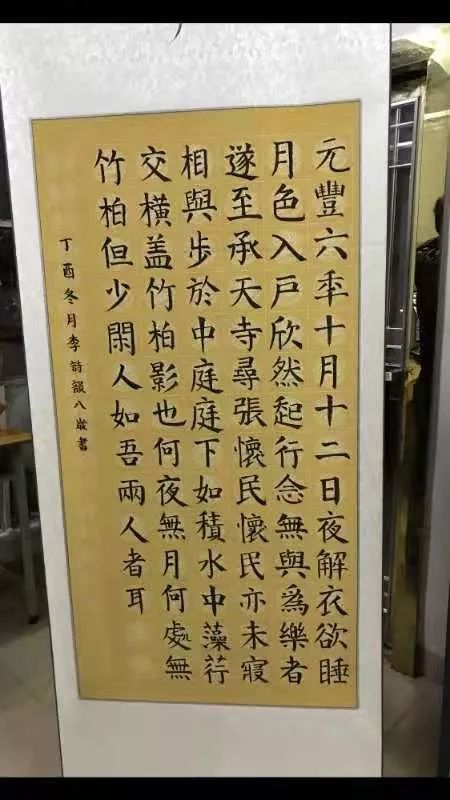 元豐六秊十月十二日夜解衣欲睡
月色入戸欣然起行念無與為樂者
遂至承天寺尋張懷民懷民亦未寢
相與步於中庭庭下如積水中藻荇
交橫盖竹柏影也何夜無月何處無
竹柏但少閑人如吾兩人者耳
丁酉冬月李詩韻八歲書